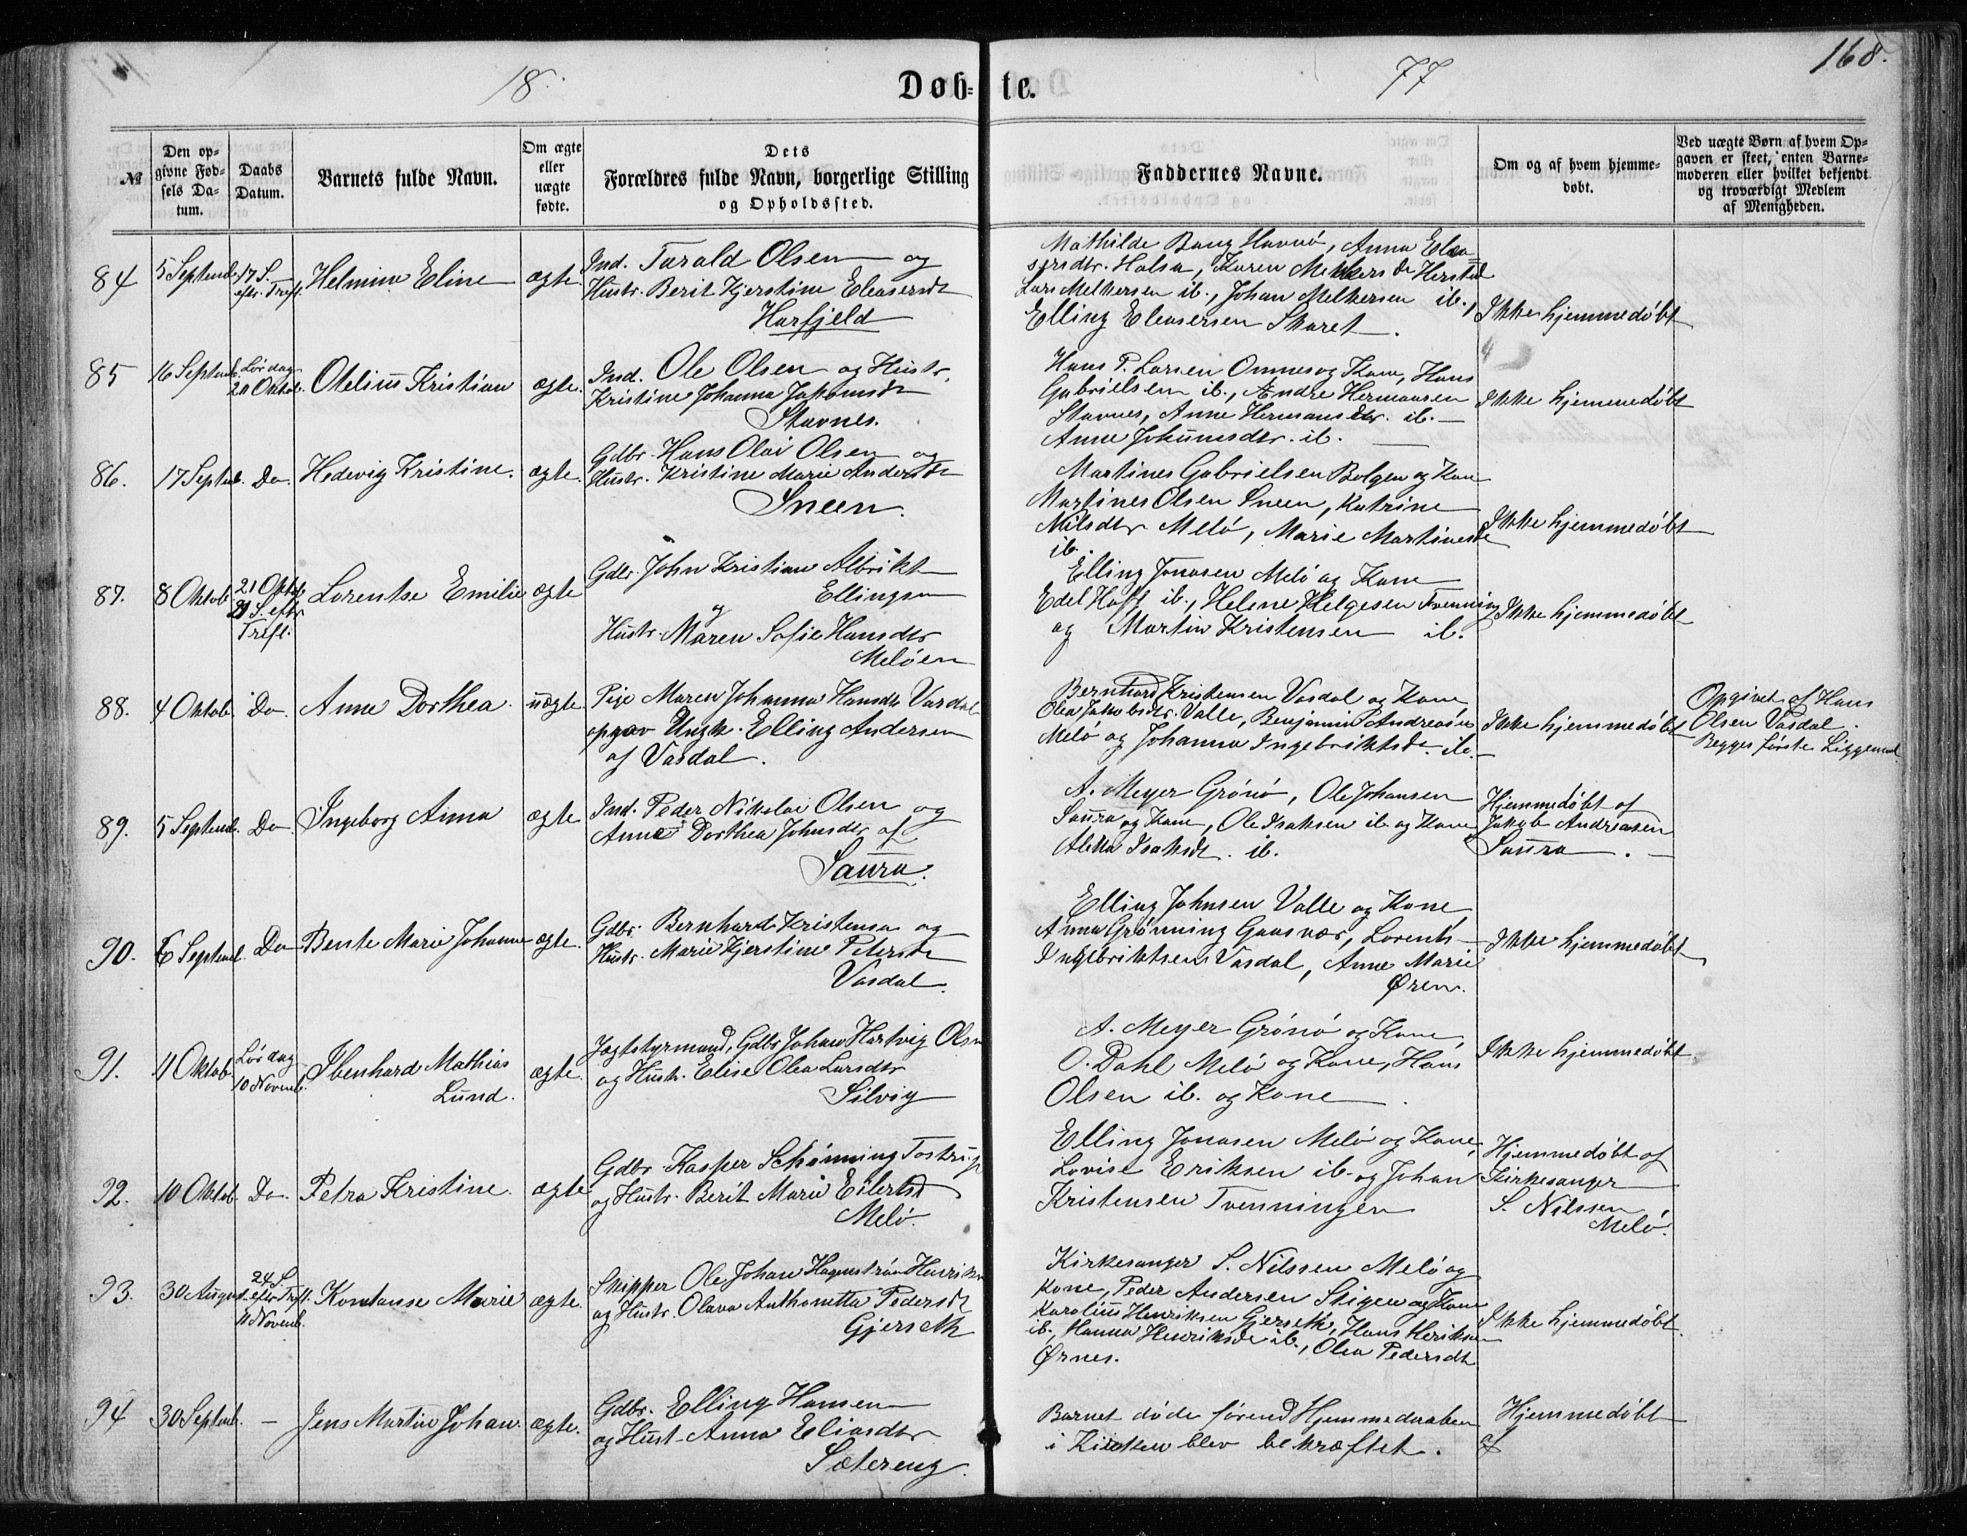 18
Døb-
te.
77
168.
№
Den op-
givne Fød-
sels Da-
tum.
Daabs
Datum.
Barnets fulde Navn.
Om ægte
eller
uægte
fødte.
Dets
Forældres fulde Navn, borgerlige Stilling
og Opholdssted.
Faddernes Navne.
Om og af hvem hjemme-
døbt.
Ved uægte Børn af hvem Op-
gaven er skeet, enten Barne-
moderen eller hvilket bekjendt
og troværdigt Medlem
af Menigheden.
84
5 Septemb.
17 S.
eftr. Tref.
Helmine Eline
ægte.
Ind. Tarald Olsen og
Hustr. Berit Kjerstine Eleasersdt
Harfjeld
Mathilde Bang Havnø, Anna Elea-
sersdtr. Halsa, Karen Melkersdt Herstad
Lars Melkersen ib., Johan Melkersen ib.,
Elling Eleasersen Skaret.
Ikke hjemmedøbt
85
16 Septemb.
Lørdag
20 Oktob.
Otelius Kristian
ægte.
Ind. Ole Olsen og Hustr.
Kristine Johanna Jakobsdt
Stavnes.
Hans P. Larsen Omnes og Kone, Hans
Gabrielsen ib., Andre Hermansen
Stavnes, Anne Hermansdtr. ib. —
Anne Johansdtr. ib.
Ikke hjemmedøbt
86.
17 Septemb.
Do.
Hedevig Kristine.
ægte.
Gdbr. Hans Olai Olsen og
Hustr. Kristine Marie Andersdt
Sneen.
Martines Gabrielsen Bolgen og Kone
Martines Olsen Sneen, Katrine
Nilsdtr Melø, Marie Martinesdt
ib.
Ikke hjemmedøbt
87.
8 Oktob.
21 Oktob.
21 S. eftr
Tref.
Lorentse Emilie
ægte
Gdbr. John Kristian Albrikt
Ellingsen
og
Hustr. Maren Sofie Hansdtr
Meløen
Elling Jonasen Melø og Kone
Edel Hoff ib., Helene Helgesen Tvenning
og Martin Kristensen ib.
Ikke hjemmedøbt
88.
4 Oktob.
Do.
Anne Dorthea.
uægte.
Pige Maren Johanna Hansdt Vasdal
opgav Ungk. Elling Andersen
af Vasdal.
Bernhard Kristensen Vasdal og Kone
Olea Jakobsdtr. Valle, Benjamin P. Andreasen
Melø og Johanna Ingebriktsdt ib.
Ikke hjemmedøbt
Opgivet af Hans
Olsen Vasdal.
Begges første Liggemaal
89.
5 Septemb.
Do.
Ingeborg Anna
ægte
Ind. Peder Nikolai Olsen og
Anne Dorthea Johnsdtr af
Saura.
A. Meyer Grønø, Ole Johansen
Saura og Kone, Ole Isaksen ib. og Kone
Isaksdt. ib.
Hjemmedøbt af
Jakob Andreasen
Saura.
90.
6 Septemb.
Do
Bente Marie Johanne
ægte.
Gdbr. Bernhard Kristensen og
Hustr. Marie Kjerstine Petersdt
Vasdal.
Elling Johnsen Valle og Kone,
Anna Grønning Gaasvær, Lorents
Ingebriktsen Vasdal, Anne Marie
Øren.
Ikke hjemmedøbt
91.
11 Oktob.
Lørdag
10 Novemb.
Ibenhard Mathias
Lund.
ægte.
Jægtstyrmand, Gdbr. Johan Hartvig Olsen
og Hustr. Elise Olea Larsdtr
Silvig
A. Meyer Grønø og Kone,
O. Dahl Melø og Kone, Hans
Olsen ib. og Kone.
Ikke hjemmedøbt.
92.
10 Oktob.
Do.
Petra Kristine.
ægte
Gdbr. Kasper Schønning Tostrup
og Hustr. Berit Marie Eilertsdt
Melø.
Elling Jonasen Melø og Kone,
Lovise Eriksen ib. og Johan
Kristensen Tvenningen
Hjemmedøbt af
Kirkesanger
S. Nilssen
Melø.
93.
30 August.
24 S.
efter Tref.
11 Novemb.
Konstanse Marie
ægte.
Skipper Ole Johan Hagenstrøm Henriksen
og Hustr. Olava Anthonetta Pedersdt
Gjerseth
Kirkesanger S. Nilssen Melø og
Kone, Peder Andersen Stigen og Kone
Karolius Henriksen Gjerseth, Hans Henriksen
ib., Hanna Henriksdt ib., Olea Pedersdt
Ørnes.
Ikke hjemmedøbt.
94
30 Septemb.
—
Jens Martin Johan.
ægte.
Gdbr. Elling Hansen
og Hust. Anna Eliasdtr
Sætereng.
Barnet døde førend Hjemmedaaben
i Kirken blev bekræftet.
Hjemmedøbt
af